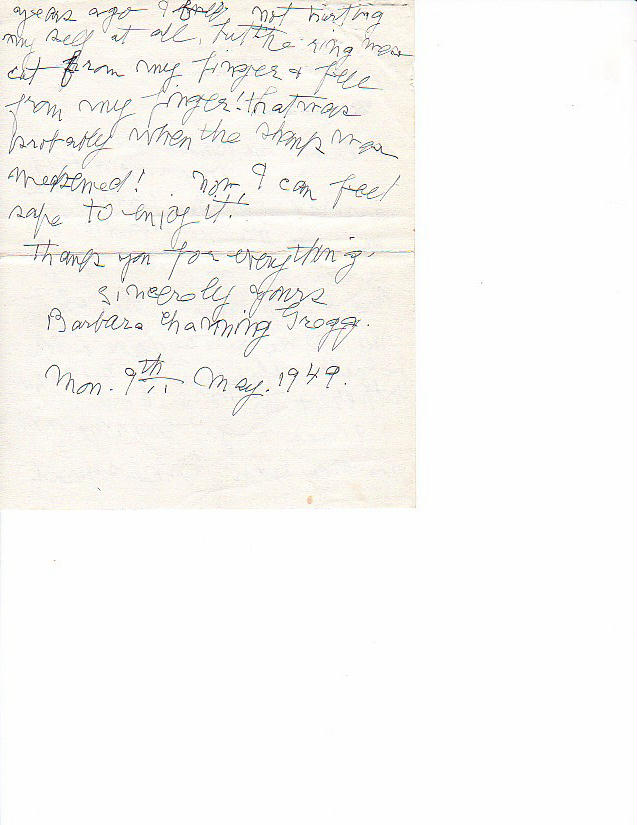 years ago I fell, not hurting
my self at all, but the ring was
cut from my finger & fell
from my finger! that was
probably when the shap was
weakened! now, I can feel
safe to enjoy it.
Thank you for everything.
Sincerely yours
Barbara Channing Grogg.
Mon. 9th May. 1949.